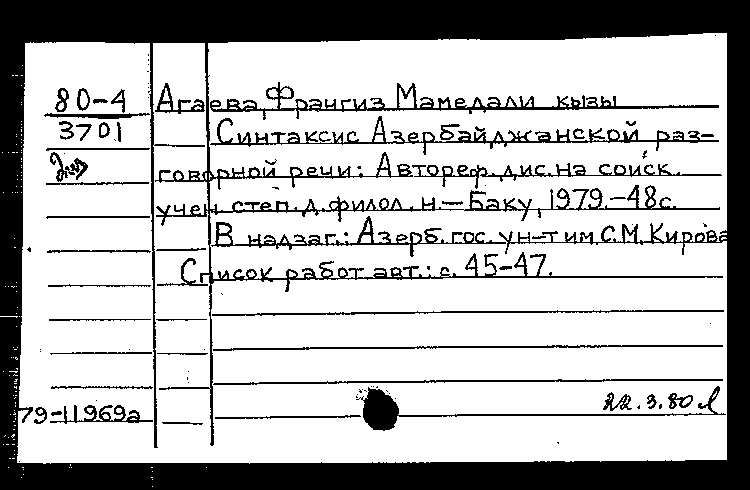 80-4 Агаева, Франгиз Мамедали кызы
3701 Синтаксис Азербайджанской раз-
говорной речи: Автореф. дис. на соиск.
учен. степ. д. филол. н. — Баку, 1979. — 48с.
В надзаг.: Азерб. гос. ун-т им. С.М. Кирова
Список работ авт.: с. 45-47.
79-11969а
22.3.80